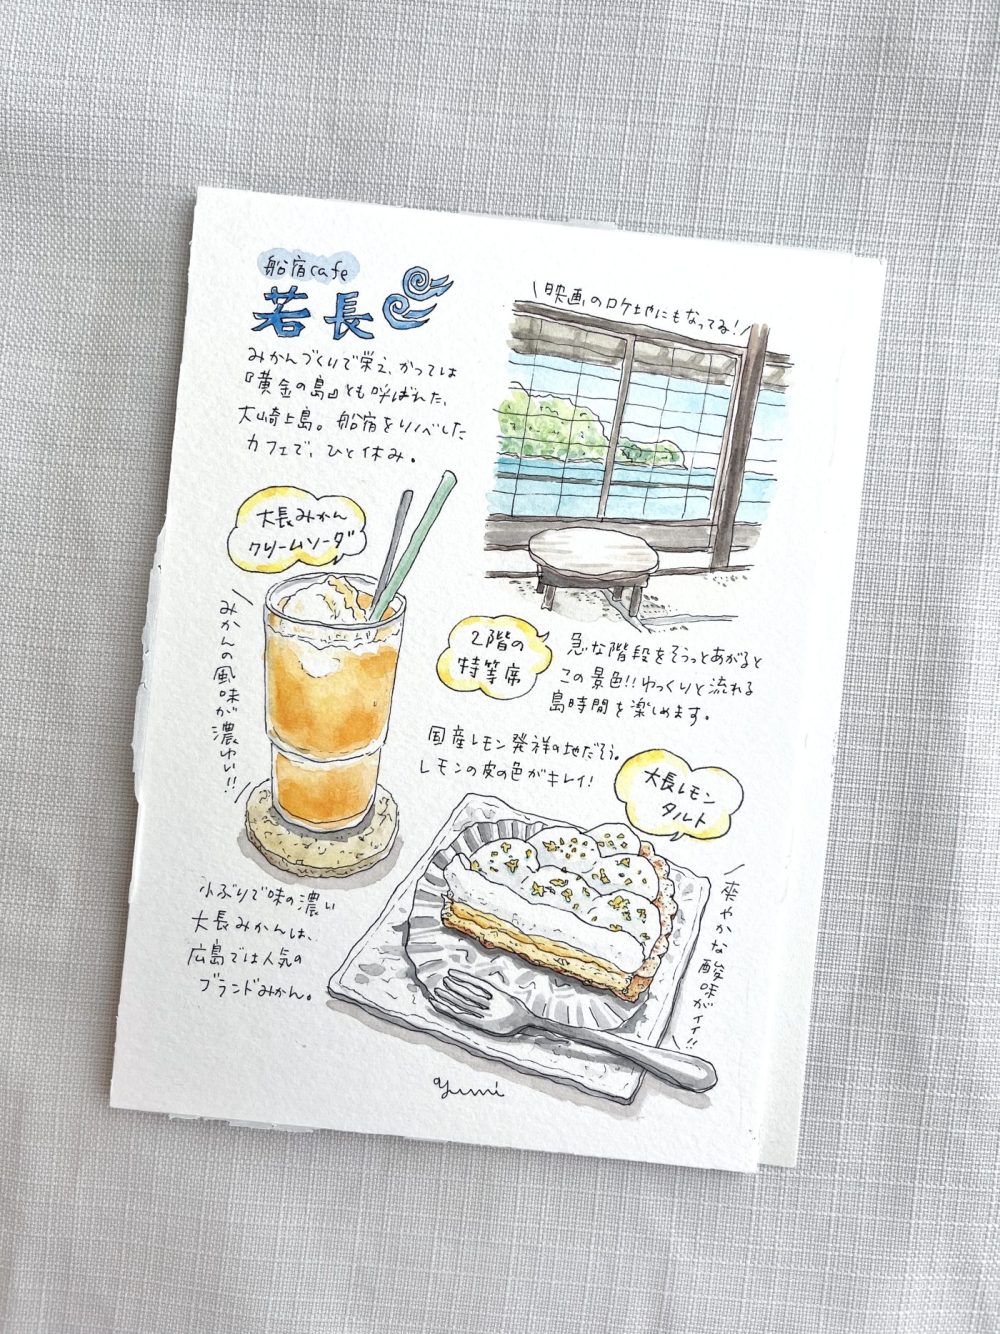 船宿cafe
若長
みかんづくりで栄え、かつては
『黄金の島』とも呼ばれた、
大崎上島。船宿をリノベした
カフェで、ひと休み。
映画のロケ地にもなってる!
大長みかん
クリームソーダ
みかんの風味が濃ゆい!!
2階の
特等席
急な階段をそうっとあがると
この景色!!ゆっくりと流れる
島時間を楽しめます。
国産レモン発祥の地だそう。
レモンの皮の色がキレイ!
大長レモン
タルト
爽やかな酸味がイイ!!
小ぶりで味の濃い
大長みかんは、
広島では人気の
ブランドみかん。
yumi